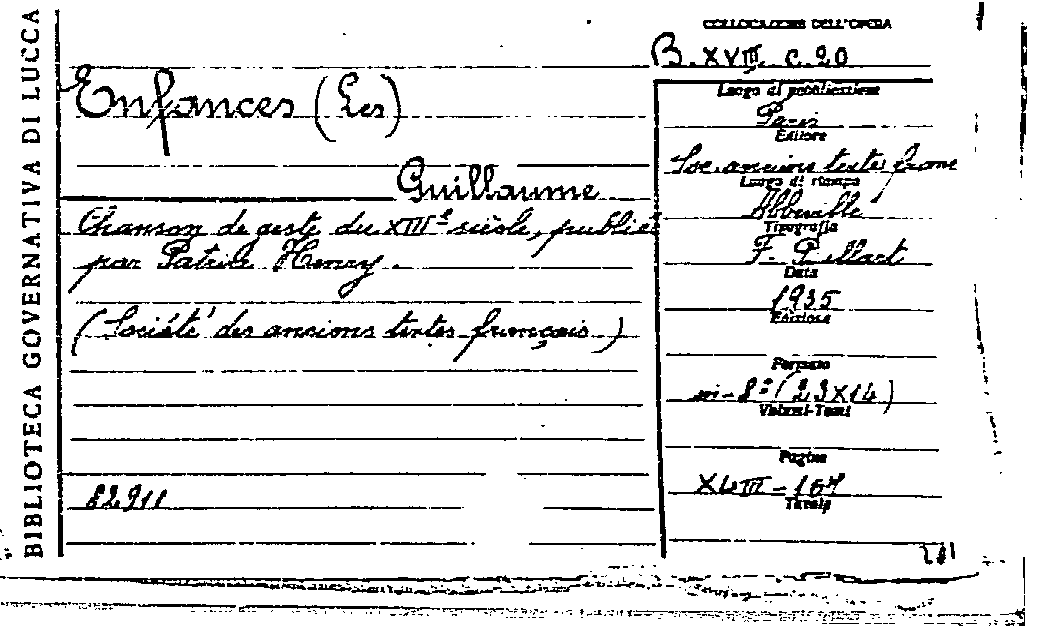 BIBLIOTECA GOVERNATIVA DI LUCCA
COLLOCAZIONE DELL'OPERA
B. XVIII c. 20
Enfances (Les)
Guillaume
Chanson de geste du XIIIe siècle, publiée
par Patrice Henry.
(Société des anciens textes français)
82911
Luogo di pubblicazione
Paris
Editore
Soc. anciens textes franc
Luogo di stampa
Abbeville
Tipografia
F. Paillart
Data
1935
Edizione
Formato
in-8º (23x14)
Volumi-Tomi
Pagine
XLIII-167
Tavole